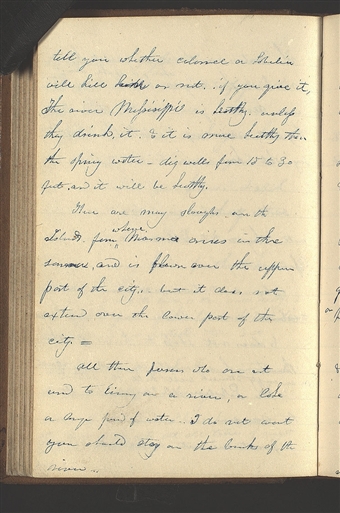 tell you whether calomel or Lobelia
will kill or not. if you give it,
The river Mississippi is healthy. unless
they drink it, & it is more healthy than
the spring water - dig wells from 15 to 30
feet, and it will be healthy.
There are many sloughs, on the
Islands from where Miasma arises in the
summer, and is blown over the upper
part of the city. but it does not
extend over the lower part of the
city. =
All those persons who are not
used to living on a river, or Lake
or large pond of water. I do not want
you should stay on the banks of the
river...